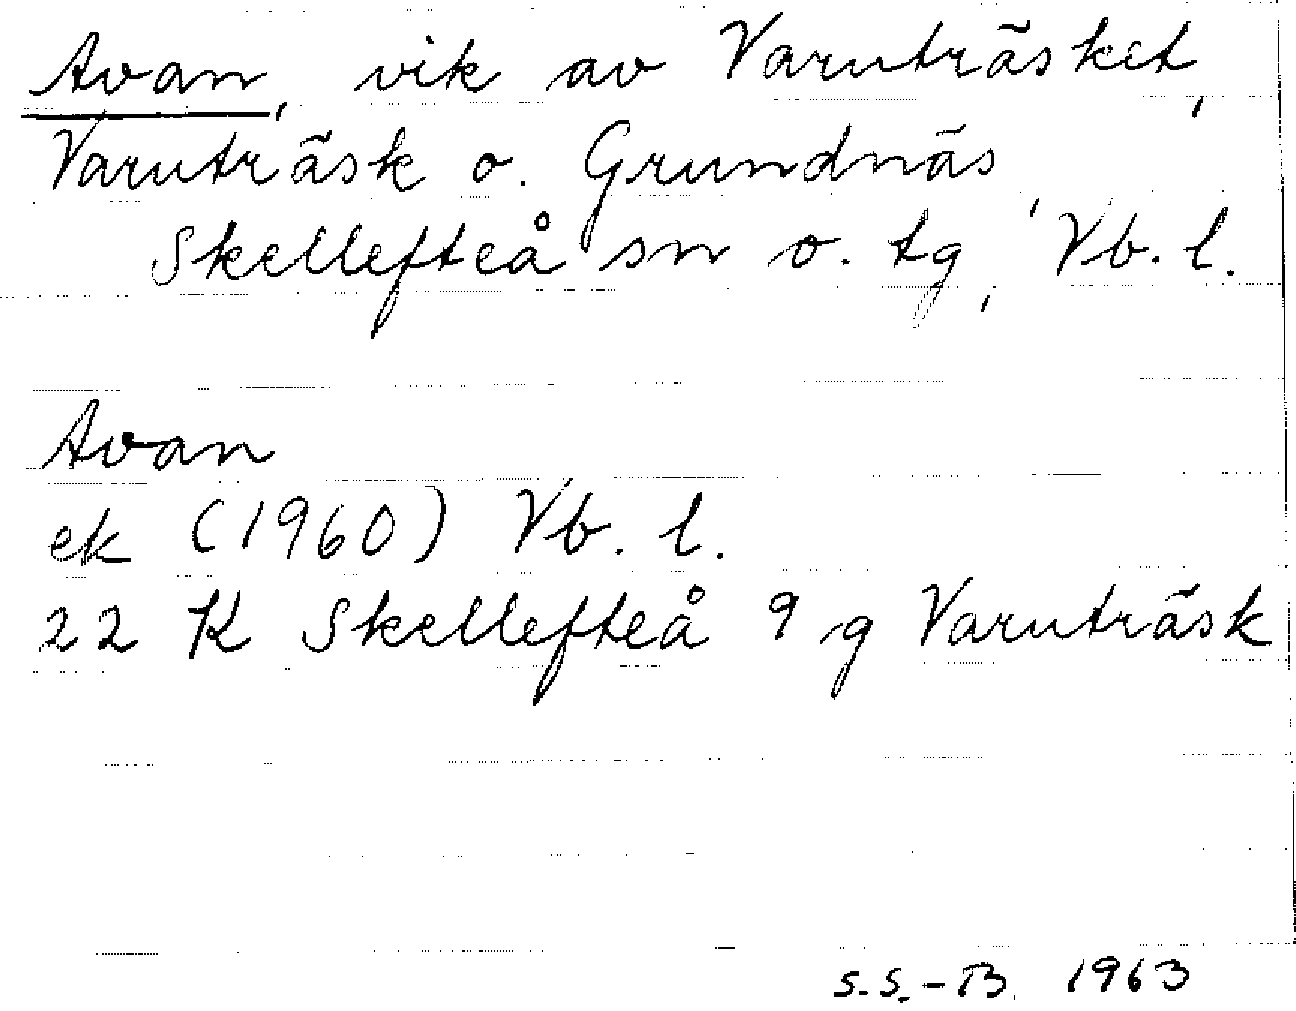 Avan, vik av Varuträsket,
Varuträsk o. Grundnäs,
Skellefteå sn o. tg, Vb. l.
Avan
ek (1960) Vb. l.
22 K Skellefteå 9 g Varuträsk
S.S.-B. 1963